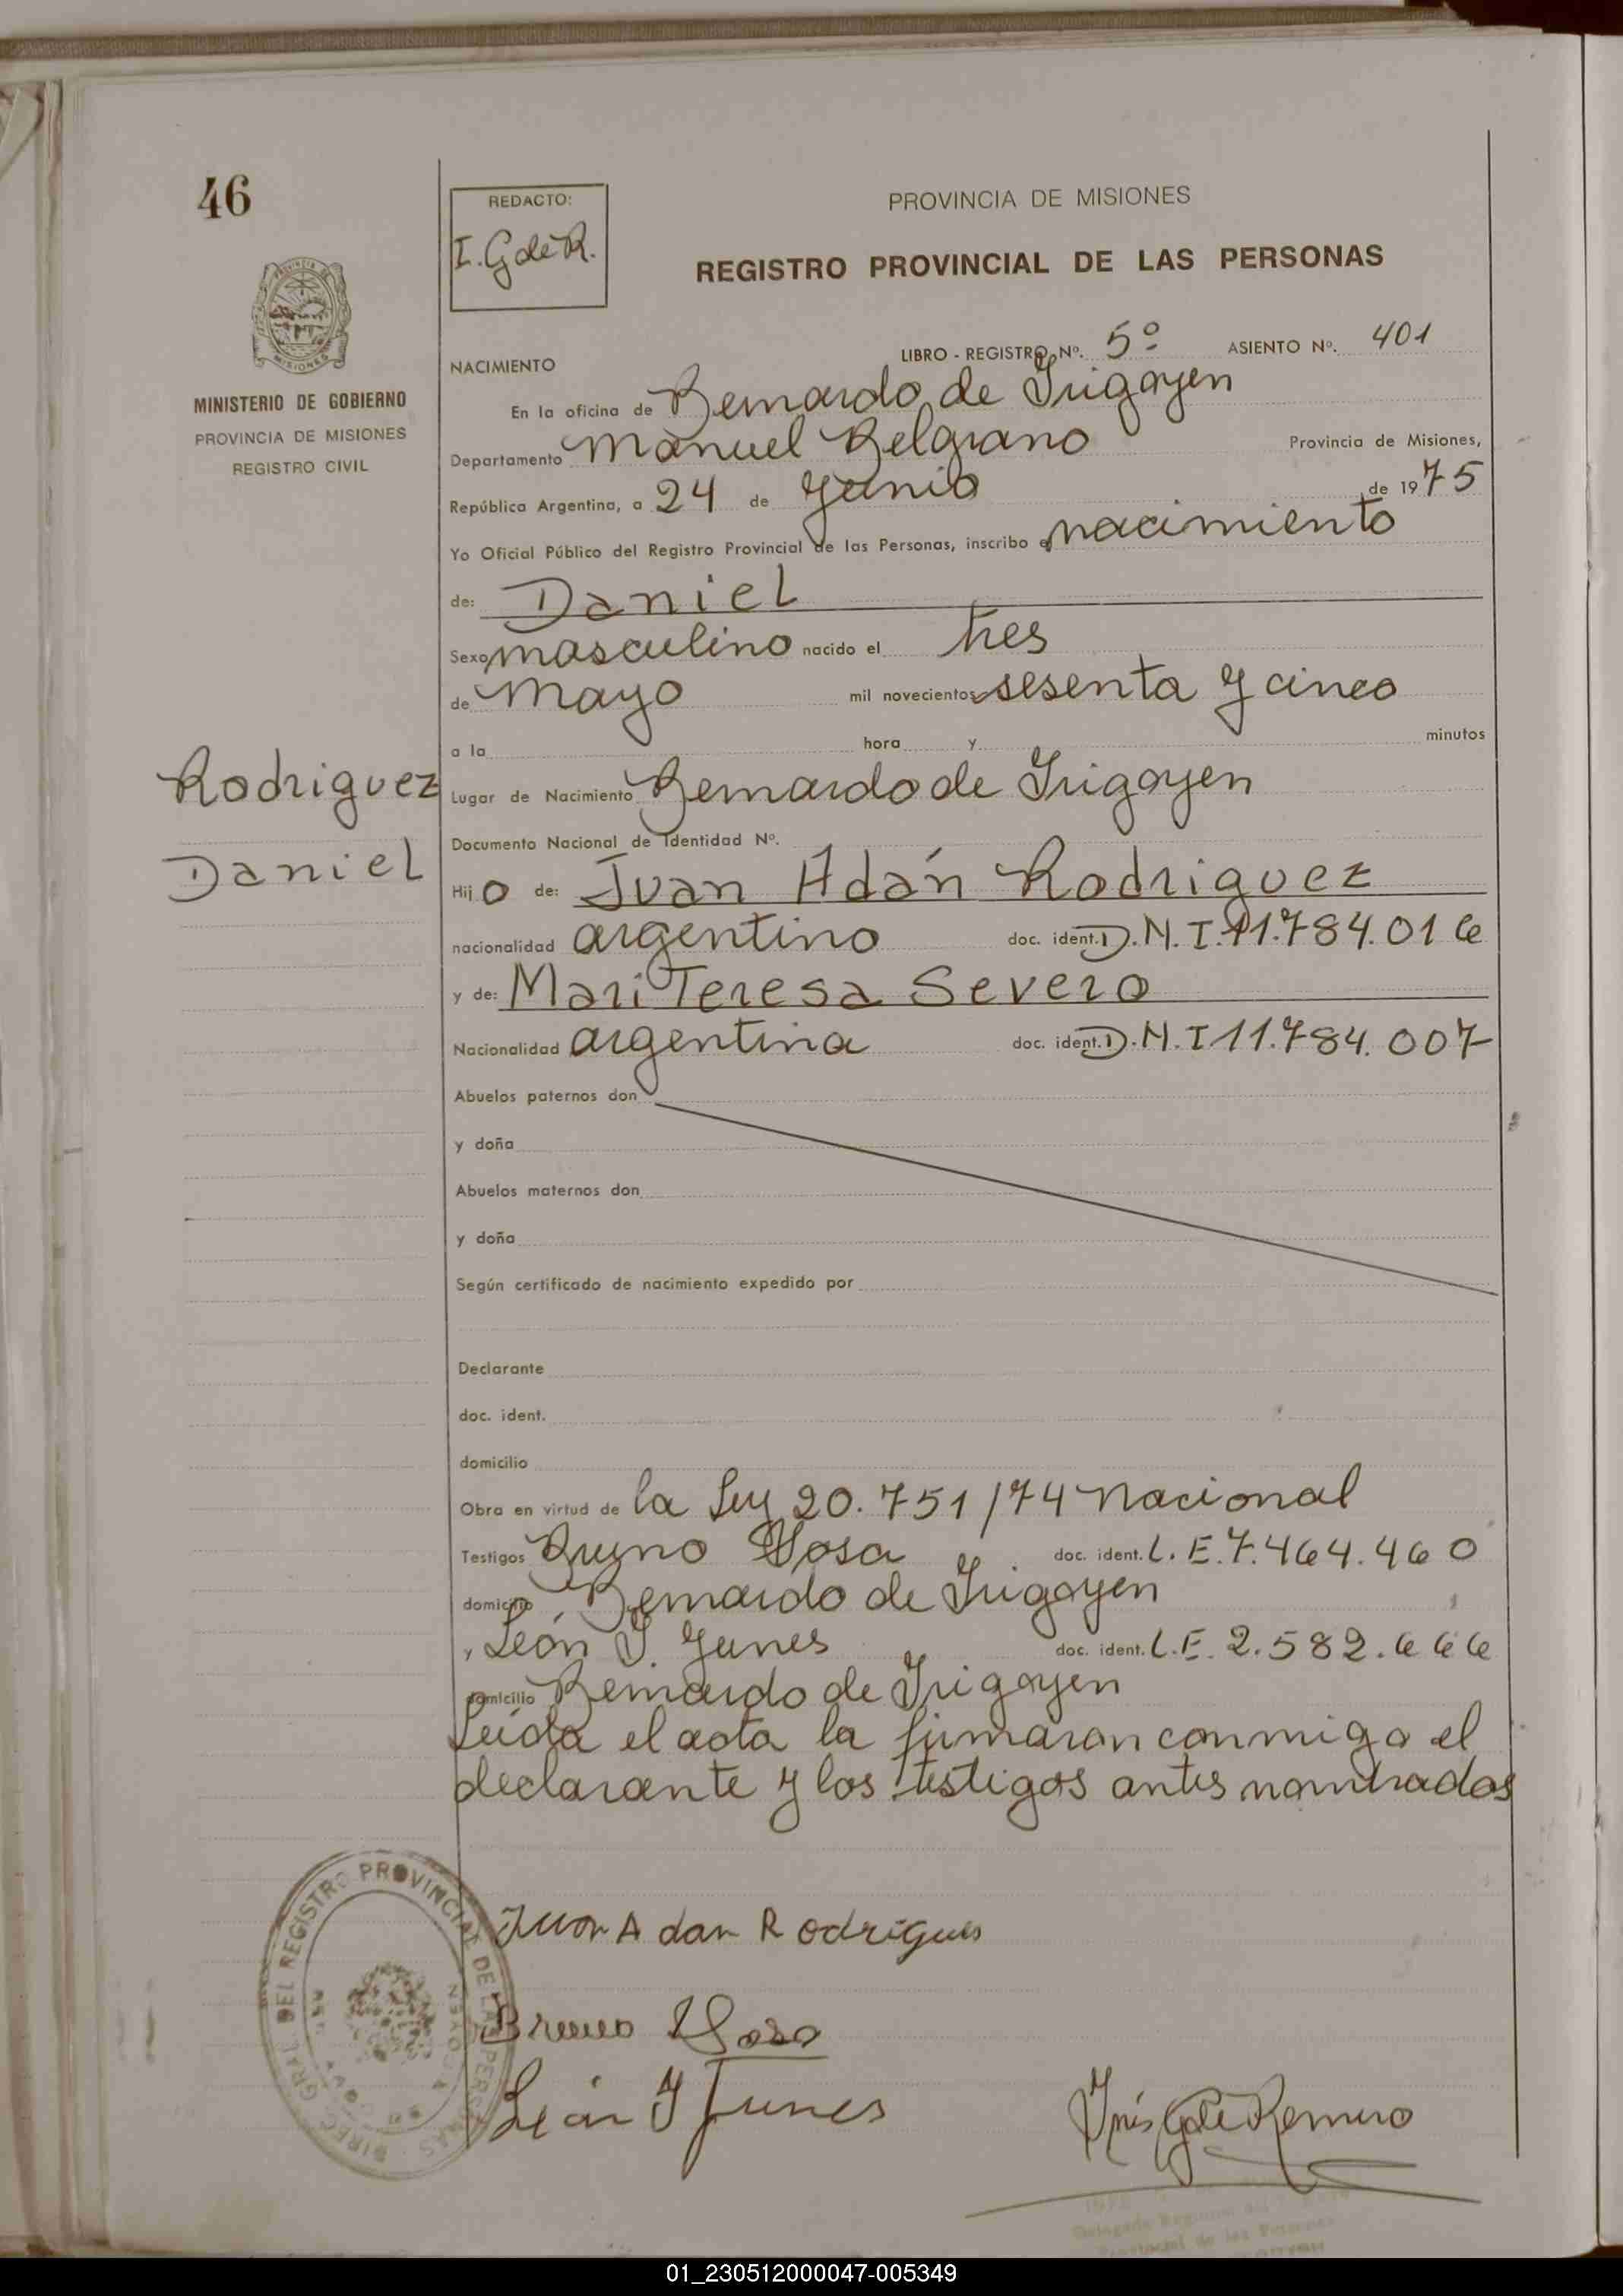 46
REDACTO:
I. G de R.
PROVINCIA DE MISIONES
REGISTRO PROVINCIAL DE LAS PERSONAS
MINISTERIO DE GOBIERNO
PROVINCIA DE MISIONES
REGISTRO CIVIL
NACIMIENTO LIBRO - REGISTRO Nº. 5º ASIENTO Nº. 401
En la oficina de Bernardo de Irigoyen
Departamento Manuel Belgrano Provincia de Misiones,
República Argentina, a 24 de Junio de 1975
Yo Oficial Público del Registro Provincial de las Personas, inscribo e nacimiento
de: Daniel
Sexo masculino nacido el tres
de Mayo mil novecientos sesenta y cinco
a la hora y minutos
Rodriguez
Daniel
Lugar de Nacimiento Bernardo de Irigoyen
Documento Nacional de Identidad Nº.
Hijo de: Juan Adán Rodriguez
nacionalidad argentino doc. ident. D.N.I. 11.784.016
y de: Mari Teresa Severo
Nacionalidad argentina doc. ident. D.N.I 11.784.007
Abuelos paternos don
y doña
Abuelos maternos don
y doña
Según certificado de nacimiento expedido por
Declarante
doc. ident.
domicilio
Obra en virtud de la Ley 20.751/74 Nacional
Testigos Bruno Sosa y doc. ident. L.E. 7.464.460
domicilio Bernardo de Irigoyen
y León J. Junes doc. ident. L.E. 2.582.666
domicilio Bernardo de Irigoyen
Leida el acta la firmaran conmigo el
declarante y los testigos antes nombrados
Juan Adan Rodrigues
Bruno Sosa
León J Junes
Inés G de Romero
DIREC. GRAL. DEL REGISTRO PROVINCIAL DE LAS PERSONAS
01_230512000047-005349